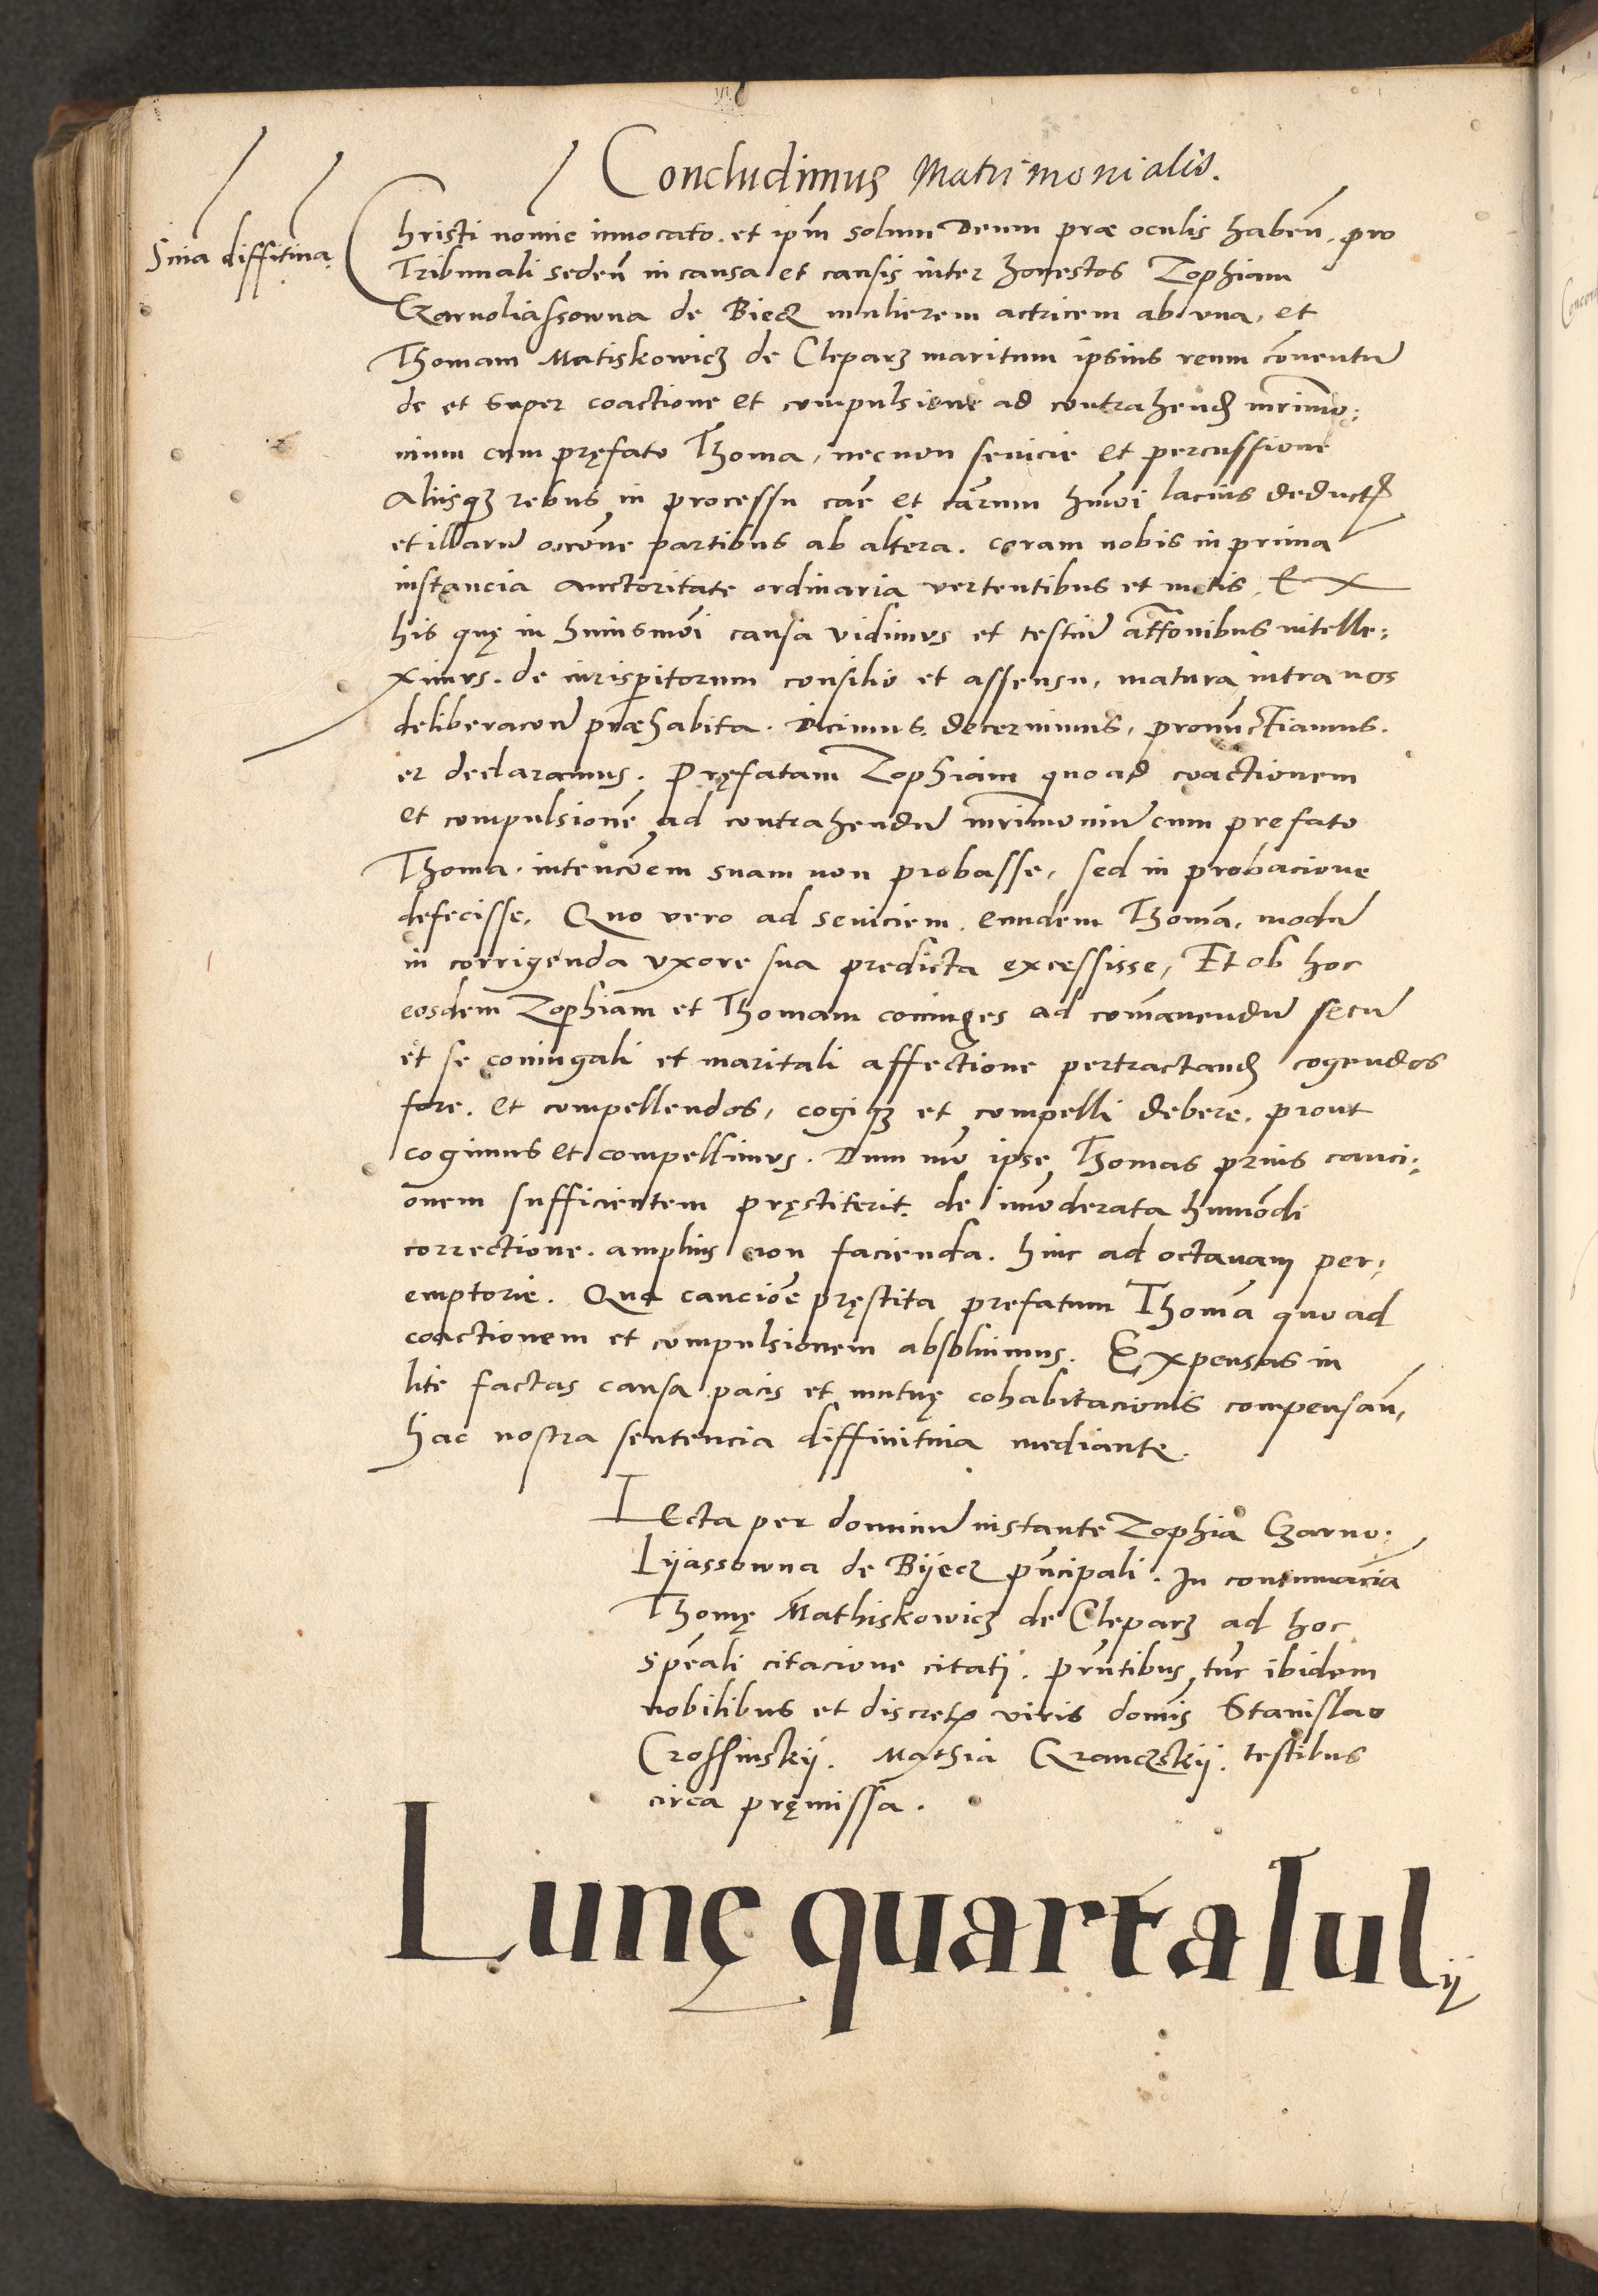 Concludimus Matrimonialis.
Snia diffitiua.
Christi nomie inuocato. et ipm̃ solum Deum præ oculis habeñ. pro
Tribunali sedeñ in causa et causis inter honestos Zophiam
Czarnoliassowna de Biecz mulierem actricem ab vna, et
Thomam Matiskowicz de Cleparz maritum ipsius reum cõuentũ
de et super coactione et compulsione ad contrahend mr̃imo:
nium cum pręfato Thoma, necnon seuicie et percussione
Aliisqz rebus in processu cae et cãrum hmõi lacius deduct
et illarũ occõne partibus ab altera. coram nobis in prima
instancia auctoritate ordinaria vertentibus et motis, Ex
his quę in huiusmõi causa vidimus et testiũ attõnibus intelle:
ximus. de iurisperitorum consilio et assensu, matura intra nos
deliberacoñe præhabita. Dicimus. decernimus, pronũctiamus.
et declaramus. Pręfatam Zophiam quoad coactionem
et compulsionẽ ad contrahendũ mr̃imoniũ cum prefato
Thoma. intencõem suam non probasse, sed in probacione
defecisse. Quo vero ad seuiciem. eundem Thomã. modũ
in corrigenda vxore sua predicta excessisse, Et ob hoc
eosdem Zophiam et Thomam coniuges ad comãnendũ secũ
et se coniugali et maritali affectione pertractand cogendos
fore. et compellendos, cogiqz et compelli debere. prout
cogimus et compellimus. Dum mõ ipse Thomas prius cauci:
onem sufficientem pręstiterit. de imoderata humõdi
correctione. amplius non facienda. hinc ad octauam per:
emptorie. Qua cauciõe pręstita prefatum Thomã quo ad
coactionem et compulsionem absoluimus. Expensas in
lite factas causa pacis et mutuę cohabitacionis compensañ,
hac nostra sentencia diffinitiua mediante.
Lecta per dominũ instante Zophia Czarno:
lyassowna de Byecz pñcipali. In contumaciã
Thomę Mathiskowicz de Cleparz ad hoc
spẽali citacione citatj. pñtibus tũc ibidem
nobilibus et discret viris domĩs Stanislao
Crossinskij. Mathia Granczskij. testibus
circa pręmissa.
Lunę quarta Iulij